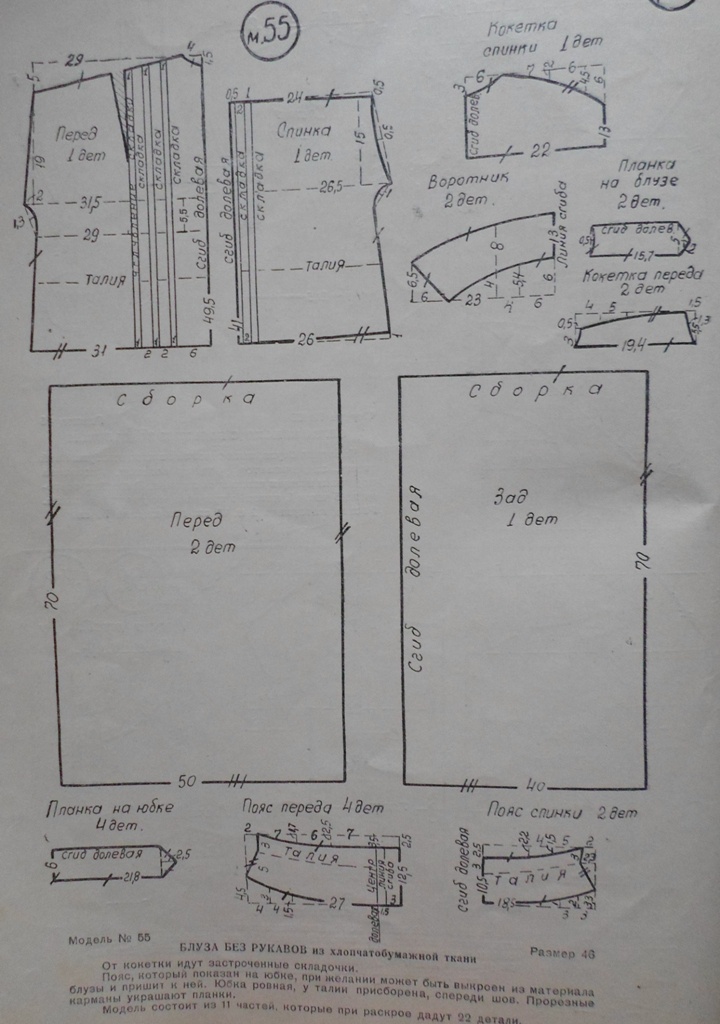 м.55
Кокетка
спинки 1 дет
Перед
1 дет
складка
складка
складка
сгиб долевая
талия
5
29
4
1,5
19
2
31,5
1,3
29
5,5
49,5
31
2 2 6
Спинка
1 дет.
сгиб долевая
складка
складка
талия
0,5 1
24
0,5
2
15
0,5
26,5
41
2
26
3
6
7
2
6
4,5
6
сгиб долев
22
13
Воротник
2 дет.
Линия сгиба
13
8
6,5
6
23
4
5,4
6
6
Планка
на блузе
2 дет.
сгиб долев.
0,5
15,7
5
2
Кокетка переда
2 дет
4 5
1,5
0,5
3
19,4
Сборка
Перед
2 дет
70
50
Сборка
Сгиб долевая
Зад
1 дет
70
40
Планка на юбке
4 дет.
сгиб долевая
6
2,5
21,8
Пояс переда 4 дет
2
7
6
7
2,5
3
талия
5
центр
линия
сгиба
долевая
12,5
4,5
4
3
4
1,5
27
3
Пояс спинки 2 дет
сгиб долевая
2,5
3
10,5
2,2
4
1,5
5
2
3
талия
18,5
3
3
Модель № 55
БЛУЗА БЕЗ РУКАВОВ из хлопчатобумажной ткани
Размер 46
От кокетки идут застроченные складочки.
Пояс, который показан на юбке, при желании может быть выкроен из материала
блузы и пришит к ней. Юбка ровная, у талии присборена, спереди шов. Прорезные
карманы украшают планки.
Модель состоит из 11 частей, которые при раскрое дадут 22 детали.